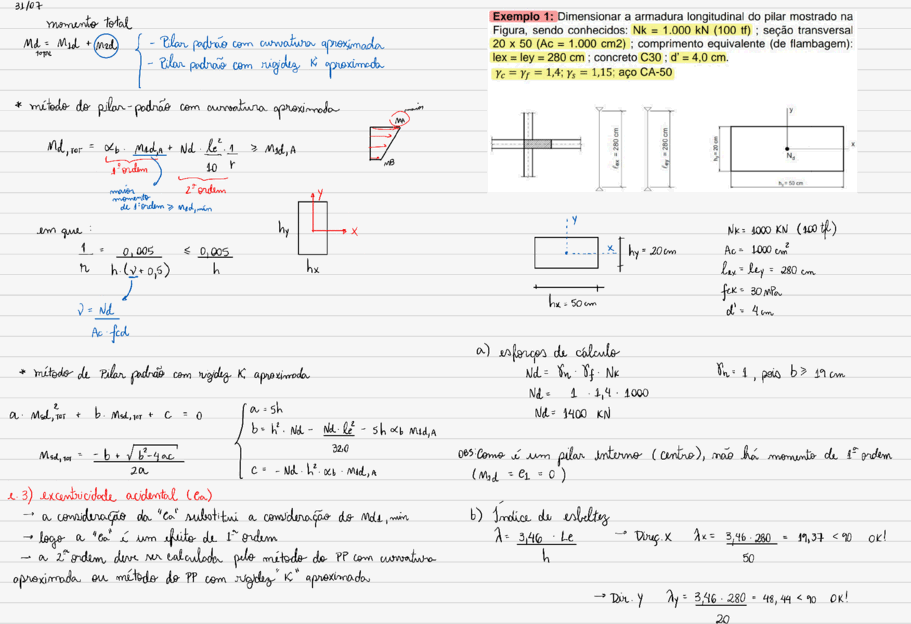 31/07
momento total
Md = M1d + M2d
topo
- Pilar padrão com curvatura aproximada
- Pilar padrão com rigidez K aproximada
* método do pilar-padrão com curvatura aproximada
Md,TOT = αb · M1d,A + Nd · le²/10 · 1/r ≥ M1d,A
1ª ordem
2ª ordem
maior
momento
de 1ª ordem ≥ M1d,min
maior
MA
MB
em que :
1/r = 0,005 / h·(ν+0,5) ≤ 0,005 / h
ν = Nd / Ac · fcd
y
x
hy
hx
* método de Pilar padrão com rigidez K aproximada
a · Msd,TOT² + b · Msd,TOT + c = 0
Msd,TOT = -b + √b²-4ac / 2a
a = 5h
b = h² · Nd - Nd · le²/320 - 5h αb M1d,A
c = - Nd · h² · αb · M1d,A
e.3) excentricidade acidental (ea)
→ a consideração da "ea" substitui a consideração do Md1,min
→ logo a "ea" é um efeito de 1ª ordem
→ a 2ª ordem deve ser calculada pelo método do PP com curvatura
aproximada ou método do PP com rigidez "K" aproximada
Exemplo 1: Dimensionar a armadura longitudinal do pilar mostrado na
Figura, sendo conhecidos: Nk = 1.000 kN (100 tf) ; seção transversal
20 x 50 (Ac = 1.000 cm2) ; comprimento equivalente (de flambagem):
lex = ley = 280 cm ; concreto C30 ; d' = 4,0 cm.
γc = γf = 1,4; γs = 1,15; aço CA-50
ℓex = 280 cm
ℓey = 280 cm
y
x
Nd
hy = 20 cm
hx = 50 cm
y
x
hy = 20 cm
hx = 50 cm
Nk = 1000 KN (100 tf)
Ac = 1000 cm²
lex = ley = 280 cm
fck = 30 MPa
d' = 4 cm
a) esforços de cálculo
Nd = γn · γf · Nk
γn = 1 , pois b ≥ 19 cm
Nd = 1 · 1,4 · 1000
Nd = 1400 KN
OBS: Como é um pilar interno (centro), não há momento de 1ª ordem
(M1d = e1 = 0)
b) Índice de esbeltez
λ = 3,46 · Le / h
→ Direç. X λx = 3,46 · 280 / 50 = 19,37 < 90 OK!
→ Dir. Y λy = 3,46 · 280 / 20 = 48,44 < 90 OK!